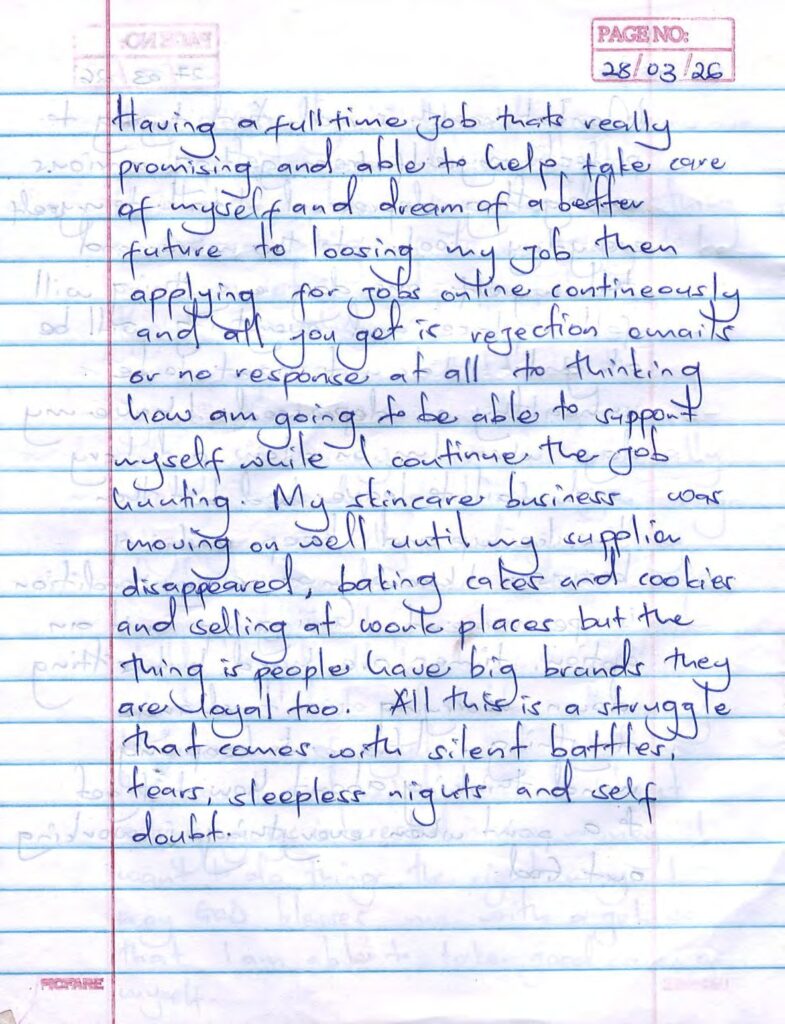 PAGE NO:
28/03/26
Having a full time job thats really
promising and able to help, take care
of myself and dream of a better
future to loosing my job then
applying for jobs online contineously
and all you get is rejection emails
or no response at all to thinking
how am going to be able to support
myself while I continue the job
hunting. My skincare business was
moving on well until my supplier
disappeared, baking cakes and cookies
and selling at work places but the
thing is people have big brands they
are loyal too. All this is a struggle
that comes with silent battles,
tears, sleepless nights and self
doubt.